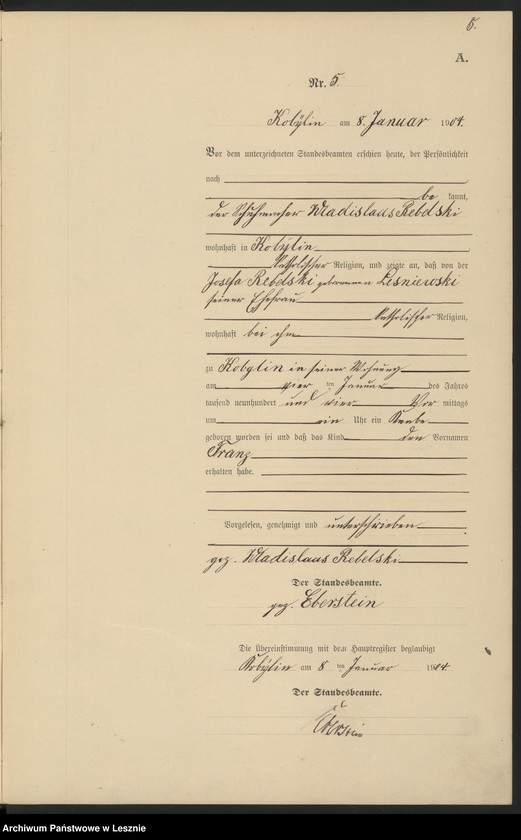 5.
A.
Nr. 5.
Kobylin am 8. Januar 1904.
Vor dem unterzeichneten Standesbeamten erschien heute, der Persönlichkeit
nach
be kannt,
der Schuhmacher Wladislaus Rebelski
wohnhaft in Kobylin
katholischer Religion, und zeigte an, daß von der
Josefa Rebelski geborenen Lesniewski
seiner Ehefrau
katholischer Religion,
wohnhaft bei ihm
zu Kobylin in seiner Wohnung
am vier ten Januar des Jahres
tausend neunhundert und vier Vor mittags
um ein Uhr ein Knabe
geboren worden sei und daß das Kind den Vornamen
Franz
erhalten habe.
Vorgelesen, genehmigt und unterschrieben
gez. Wladislaus Rebelski
Der Standesbeamte.
gez. Eberstein
Die Übereinstimmung mit dem Hauptregister beglaubigt
Kobylin am 8 ten Januar 1904
Der Standesbeamte.
Eberstein
Archiwum Państwowe w Lesznie